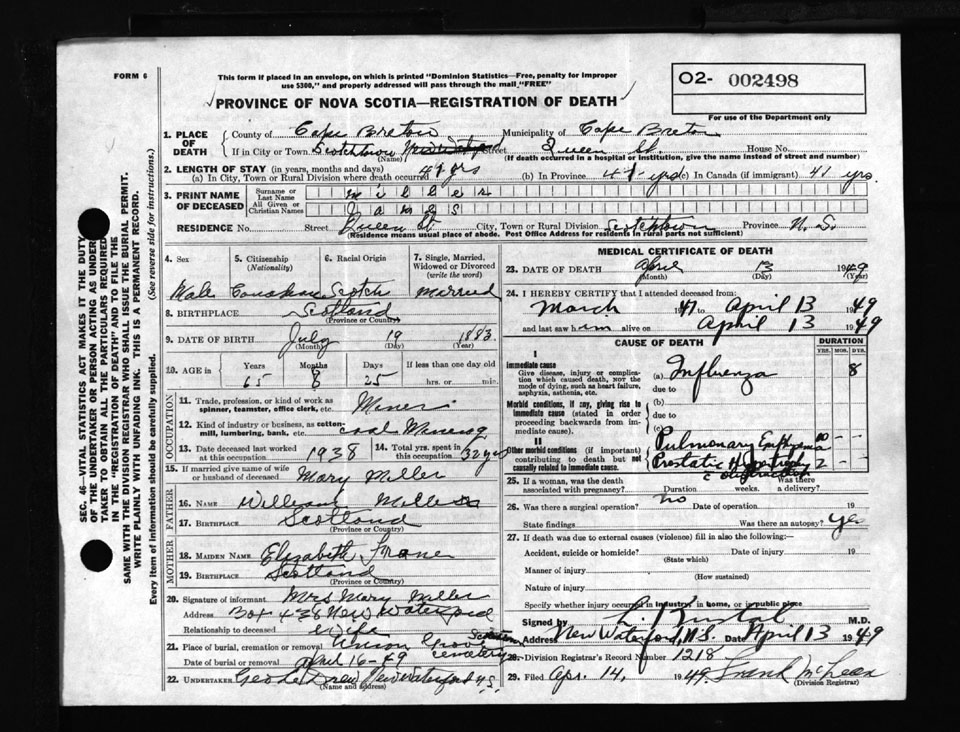 FORM 6
This form if placed in an envelope, on which is printed "Dominion Statistics—Free, penalty for improper
use $300," and properly addressed will pass through the mail "FREE"
O2- 002498
For use of the Department only
PROVINCE OF NOVA SCOTIA—REGISTRATION OF DEATH
SEC. 46—VITAL STATISTICS ACT MAKES IT THE DUTY
OF THE UNDERTAKER OR PERSON ACTING AS UNDER
TAKER TO OBTAIN ALL THE PARTICULARS REQUIRED
IN THE "REGISTRATION OF DEATH" AND TO FILE THIS
SAME WITH THE DIVISION REGISTRAR WHO SHALL ISSUE THE BURIAL PERMIT.
WRITE PLAINLY WITH UNFADING INK. THIS IS A PERMANENT RECORD.
Every item of information should be carefully supplied. (See reverse side for instructions.)
1. PLACE OF DEATH
County of Cape Breton Municipality of Cape Breton
If in City or Town Scotchtown Street Queen St. House No.
(Name) (If death occurred in a hospital or institution, give the name instead of street and number)
2. LENGTH OF STAY (in years, months and days)
(a) In City, Town or Rural Division where death occurred 41 yrs (b) In Province 41 yrs (c) In Canada (if immigrant) 41 yrs.
3. PRINT NAME OF DECEASED
Surname or Last Name Miller
All Given or Christian Names James
RESIDENCE No. Street Queen St City, Town or Rural Division Scotchtown Province N. S.
(Residence means usual place of abode. Post Office Address for residents in rural parts not sufficient)
4. Sex Male
5. Citizenship (Nationality) Canadian
6. Racial Origin Scotch
7. Single, Married, Widowed or Divorced (write the word) Married
8. BIRTHPLACE Scotland
(Province or Country)
9. DATE OF BIRTH July 19 1883
(Month) (Day) (Year)
10. AGE in Years Months Days If less than one day old
65 8 25 hrs. or min.
OCCUPATION
11. Trade, profession, or kind of work as
spinner, teamster, office clerk, etc. Miner
12. Kind of industry or business, as cotton-
mill, lumbering, bank, etc. coal Mining
13. Date deceased last worked at this occupation 1938
14. Total yrs. spent in this occupation 32 yrs
15. If married give name of wife
or husband of deceased Mary Miller
FATHER
16. NAME William Miller
17. BIRTHPLACE Scotland
(Province or Country)
MOTHER
18. MAIDEN NAME Elizabeth
19. BIRTHPLACE Scotland
(Province or Country)
20. Signature of informant Mrs Mary Miller
Address Box 438 New Waterford
Relationship to deceased Wife
21. Place of burial, cremation or removal Union Grove Scotchtown cemetery
Date of burial or removal April 16-49
22. UNDERTAKER Geo Drew New Waterford N.S.
(Name and address)
MEDICAL CERTIFICATE OF DEATH
23. DATE OF DEATH April 13 1949
(Month) (Day)
24. I HEREBY CERTIFY that I attended deceased from:
March 1947 to April 13 1949
and last saw him alive on April 13 1949
CAUSE OF DEATH DURATION
YRS. MOS. DYS.
I
Immediate cause
Give disease, injury or complica-
tion which caused death, not the
mode of dying, such as heart failure,
asphyxia, asthenia, etc.
(a) Influenza 8
due to
Morbid conditions, if any, giving rise to
immediate cause (stated in order
proceeding backwards from im-
mediate cause).
(b)
due to
(c)
II
Other morbid conditions (if important)
contributing to death but not
causally related to immediate cause.
Pulmonary Emphysema 10 - -
Prostatic Hypertrophy 2 - -
c obstruction
25. If a woman, was the death
associated with pregnancy? Duration weeks. Was there a delivery?
26. Was there a surgical operation? no Date of operation 19
State findings Was there an autopsy? Yes
27. If death was due to external causes (violence) fill in also the following:—
Accident, suicide or homicide? Date of injury 19
(State which)
Manner of injury
(How sustained)
Nature of injury
Specify whether injury occurred in industry, in home, or in public place
Signed by M.D.
Address New Waterford, N.S. Date April 13 1949
28. Division Registrar's Record Number 1218
29. Filed Apr. 14, 1949. Frank McLean
(Division Registrar)